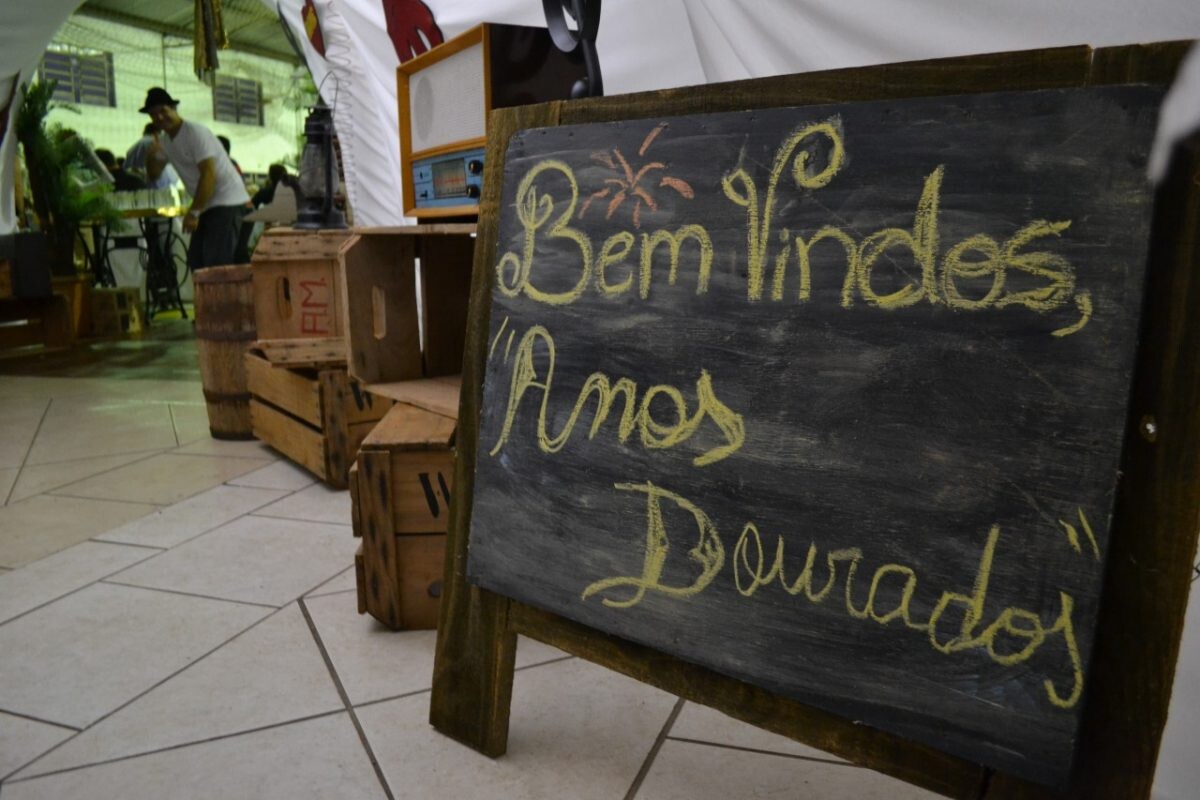 Bem Vindos,
"Anos
Dourados"
FM